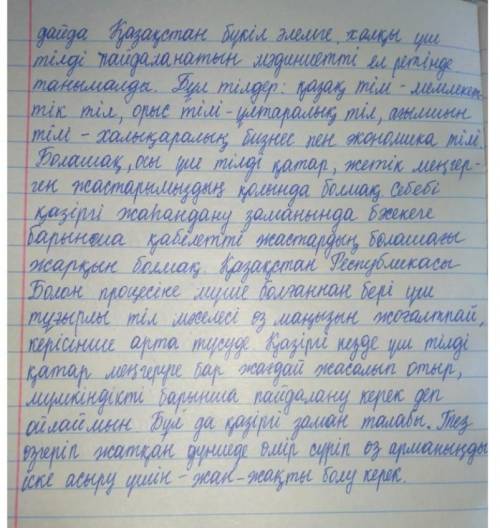 дайда Қазақстан бүкіл әлемге, халқы үш
тілді пайдаланатын мәдениетті ел ретінде
танымалды. Бұл тілдер: қазақ тілі - мемлекет
тік тіл, орыс тілі - ұлтаралық тіл, ағылшын
тілі - халықаралық бизнес пен экономика тілі.
Болашақ, осы үш тілді қатар, жетік меңгер-
ген жастарымыздың қолында болмақ. Себебі
қазіргі жаһандану заманында бәсекеге
барынша қабілетті жастардың болашағы
жарқын болмақ. Қазақстан Республикасы
Болон процесіне мүше болғаннан бері үш
тұғырлы тіл мәселесі өз маңызын жоғалтпай,
керісінше арта түсуде. Қазіргі кезде үш тілді
қатар меңгеруге бар жағдай жасалып отыр,
мүмкіндікті барынша пайдалану керек деп
ойлаймын. Бұл да қазіргі заман талабы. Тез
өзгеріп жатқан дүниеде өмір сүріп өз арманыңды
іске асыру үшін - жан-жақты болу керек.